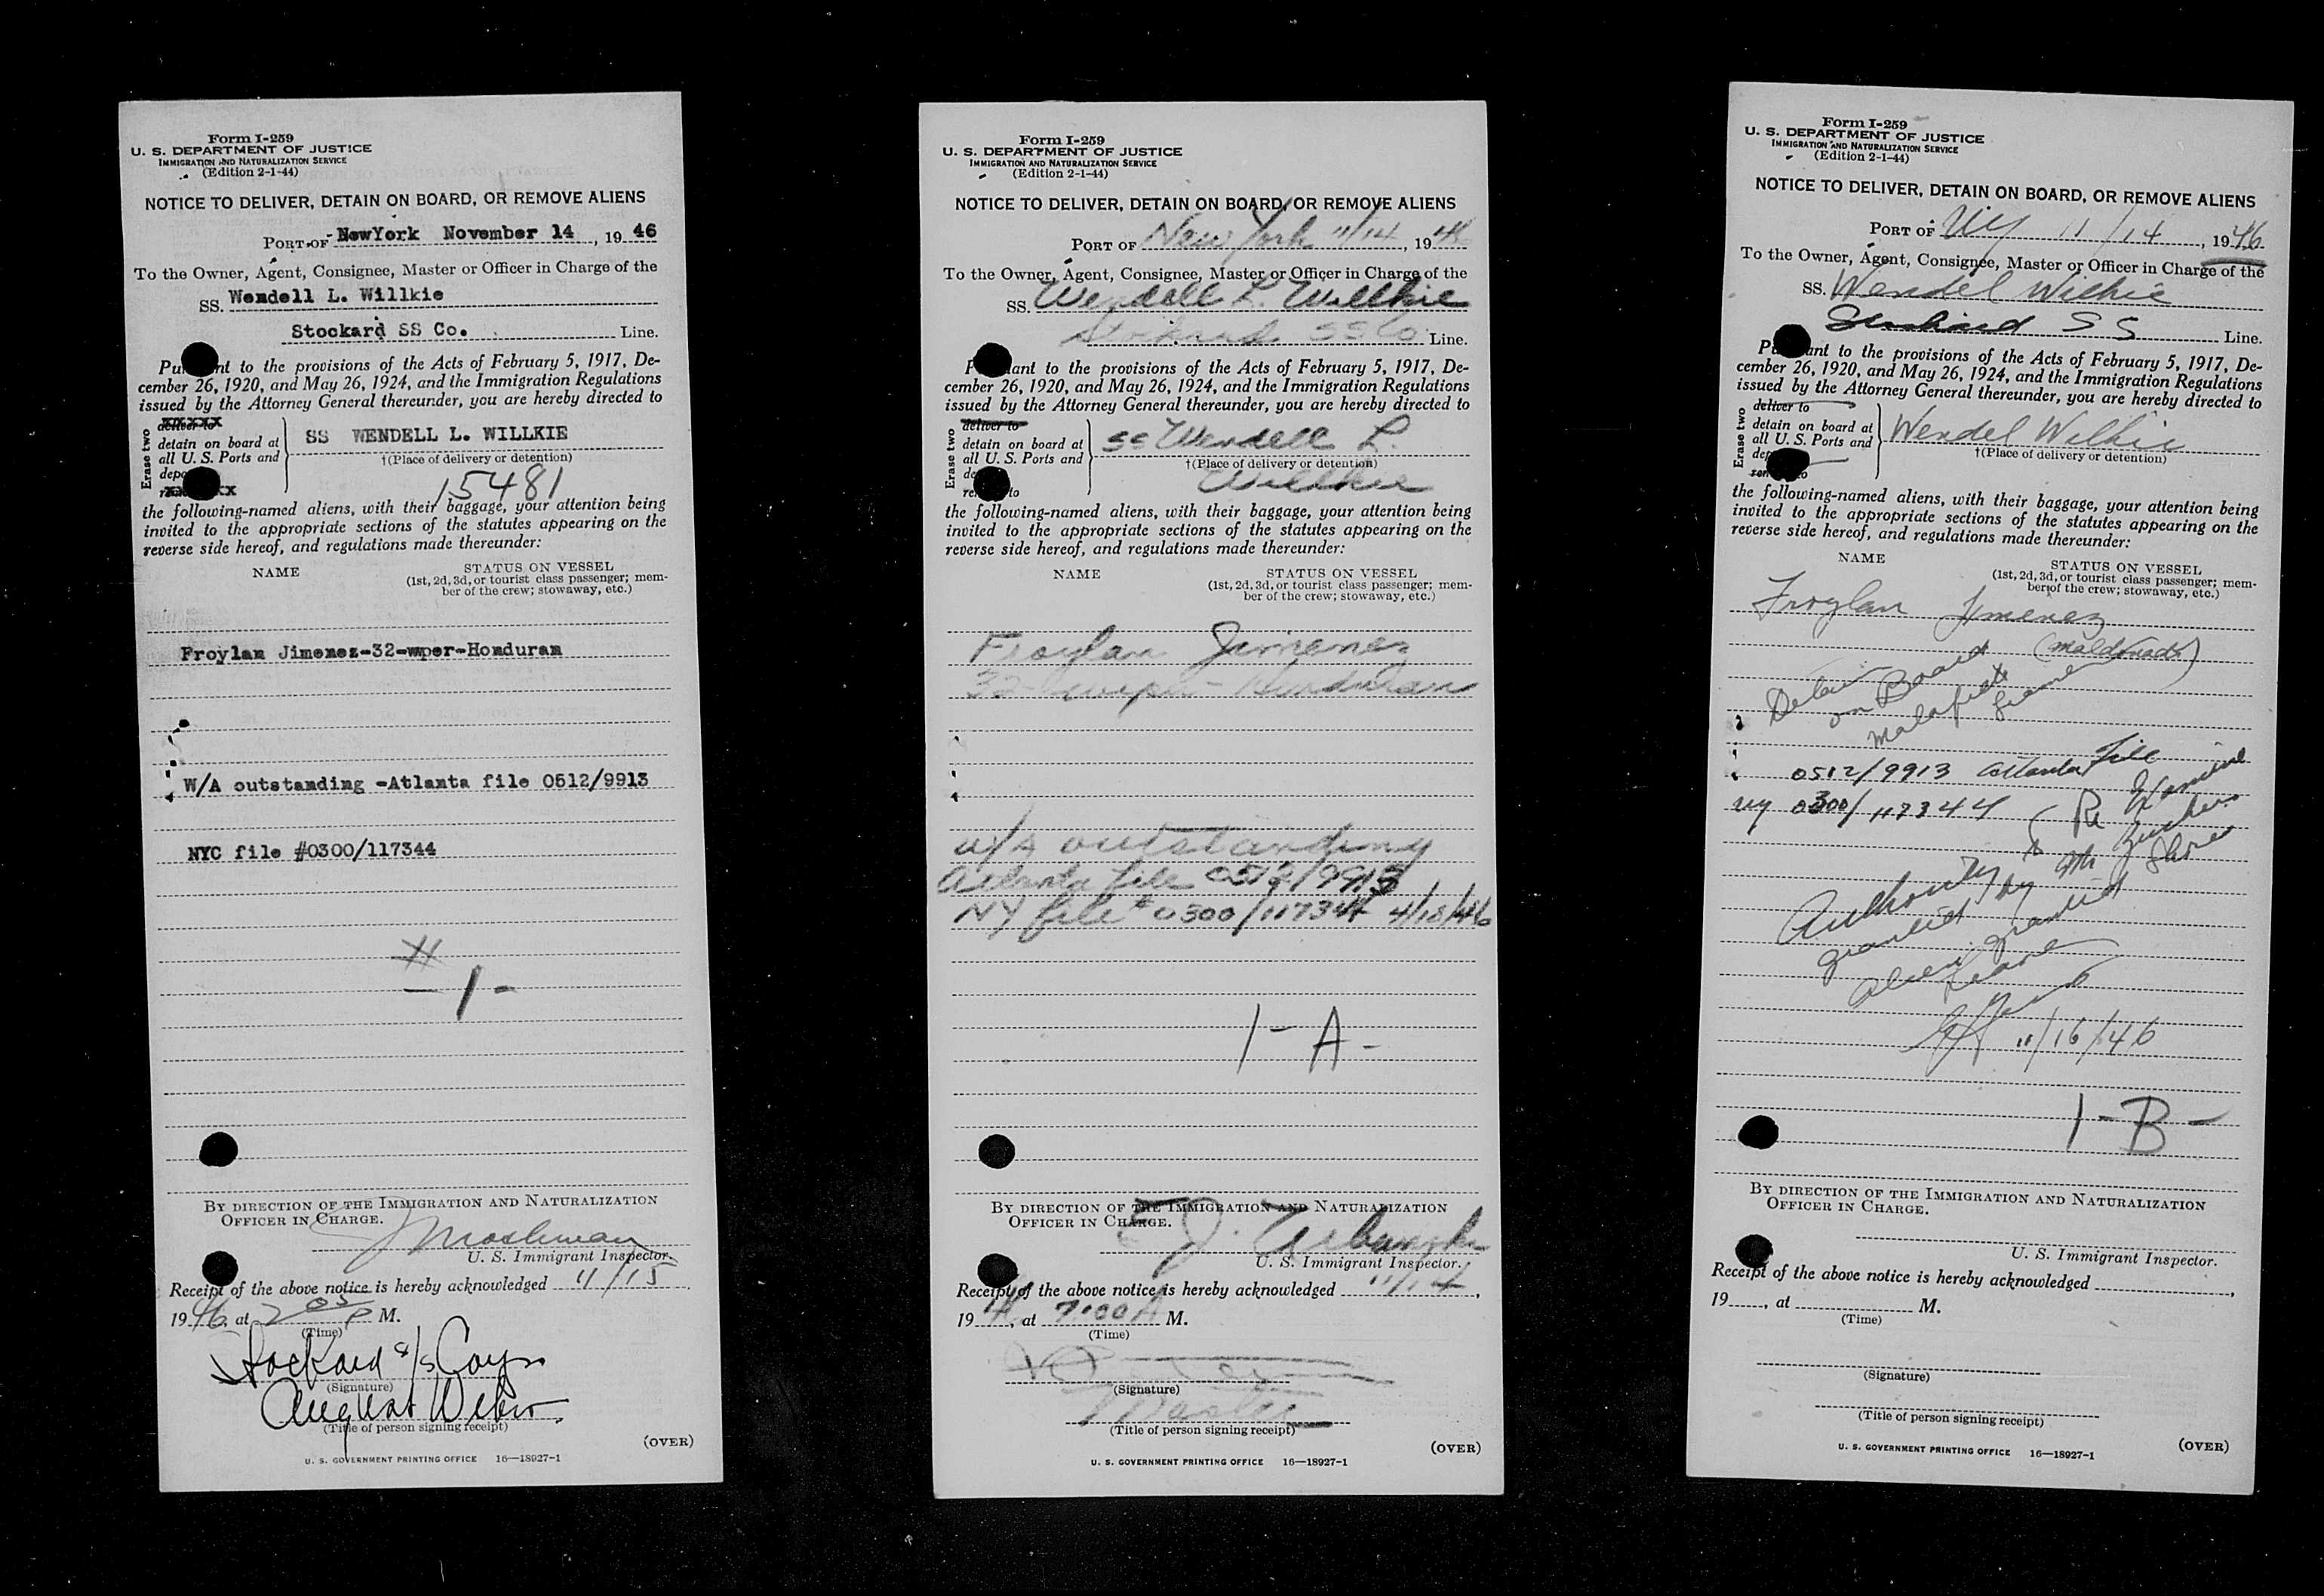 Form I-259
U. S. DEPARTMENT OF JUSTICE
IMMIGRATION AND NATURALIZATION SERVICE
(Edition 2-1-44)
NOTICE TO DELIVER, DETAIN ON BOARD, OR REMOVE ALIENS
PORT OF NewYork November 14, 19 46
To the Owner, Agent, Consignee, Master or Officer in Charge of the
SS. Wendell L. Willkie
Stockard SS Co. Line.
Pu nt to the provisions of the Acts of February 5, 1917, De-
cember 26, 1920, and May 26, 1924, and the Immigration Regulations
issued by the Attorney General thereunder, you are hereby directed to
Erase two
deliver to
detain on board at
all U. S. Ports and
depo
SS WENDELL L. WILLKIE
†(Place of delivery or detention)
15481
the following-named aliens, with their baggage, your attention being
invited to the appropriate sections of the statutes appearing on the
reverse side hereof, and regulations made thereunder:
NAME
STATUS ON VESSEL
(1st, 2d, 3d, or tourist class passenger; mem-
ber of the crew; stowaway, etc.)
Froylan Jimenez-32-wper-Honduran
W/A outstanding -Atlanta file 0512/9913
NYC file #0300/117344
#
- 1 -
BY DIRECTION OF THE IMMIGRATION AND NATURALIZATION
OFFICER IN CHARGE.
J Moshman
U. S. Immigrant Inspector.
Receipt of the above notice is hereby acknowledged 11/15,
19 46, at 2 05 P M.
(Time)
Stockard s/s Corp
(Signature)
August Weber
(Title of person signing receipt)
(OVER)
U. S. GOVERNMENT PRINTING OFFICE 16—18927-1
Form I-259
U. S. DEPARTMENT OF JUSTICE
IMMIGRATION AND NATURALIZATION SERVICE
(Edition 2-1-44)
NOTICE TO DELIVER, DETAIN ON BOARD, OR REMOVE ALIENS
PORT OF New York 11/14, 19 46
To the Owner, Agent, Consignee, Master or Officer in Charge of the
SS. Wendell L. Willkie
Stockard SS Co Line.
P uant to the provisions of the Acts of February 5, 1917, De-
cember 26, 1920, and May 26, 1924, and the Immigration Regulations
issued by the Attorney General thereunder, you are hereby directed to
Erase two
deliver to
detain on board at
all U. S. Ports and
de
re to
SS Wendell L.
†(Place of delivery or detention)
Willkie
the following-named aliens, with their baggage, your attention being
invited to the appropriate sections of the statutes appearing on the
reverse side hereof, and regulations made thereunder:
NAME
STATUS ON VESSEL
(1st, 2d, 3d, or tourist class passenger; mem-
ber of the crew; stowaway, etc.)
Froylan Jimenez
32 - wiper - Honduran
w/a outstanding
Atlanta file 0512/9913
NY file # 0300/117344 4/18/46
1 - A -
BY DIRECTION OF THE IMMIGRATION AND NATURALIZATION
OFFICER IN CHARGE.
U. S. Immigrant Inspector.
Receipt of the above notice is hereby acknowledged 11/14,
19 46, at 7:00 A M.
(Time)
(Signature)
Master
(Title of person signing receipt)
(OVER)
U. S. GOVERNMENT PRINTING OFFICE 16—18927-1
Form I-259
U. S. DEPARTMENT OF JUSTICE
IMMIGRATION AND NATURALIZATION SERVICE
(Edition 2-1-44)
NOTICE TO DELIVER, DETAIN ON BOARD, OR REMOVE ALIENS
PORT OF NY 11/14, 19 46
To the Owner, Agent, Consignee, Master or Officer in Charge of the
SS. Wendel Wilkie
SS Line.
P uant to the provisions of the Acts of February 5, 1917, De-
cember 26, 1920, and May 26, 1924, and the Immigration Regulations
issued by the Attorney General thereunder, you are hereby directed to
Erase two
deliver to
detain on board at
all U. S. Ports and
dep
rem to
Wendel Wilkie
†(Place of delivery or detention)
the following-named aliens, with their baggage, your attention being
invited to the appropriate sections of the statutes appearing on the
reverse side hereof, and regulations made thereunder:
NAME
STATUS ON VESSEL
(1st, 2d, 3d, or tourist class passenger; mem-
ber of the crew; stowaway, etc.)
Froylan Jimenez
(Maldonado)
Detain
on Board
Malafide
Seaman
0512/9913 Atlanta File
NY 0300/117344
Re Examine
Authority to
granted by Mr Zucker
alien granted Shore
Leave
11/16/46
1 - B -
BY DIRECTION OF THE IMMIGRATION AND NATURALIZATION
OFFICER IN CHARGE.
U. S. Immigrant Inspector.
Receipt of the above notice is hereby acknowledged
19 , at M.
(Time)
(Signature)
(Title of person signing receipt)
(OVER)
U. S. GOVERNMENT PRINTING OFFICE 16—18927-1